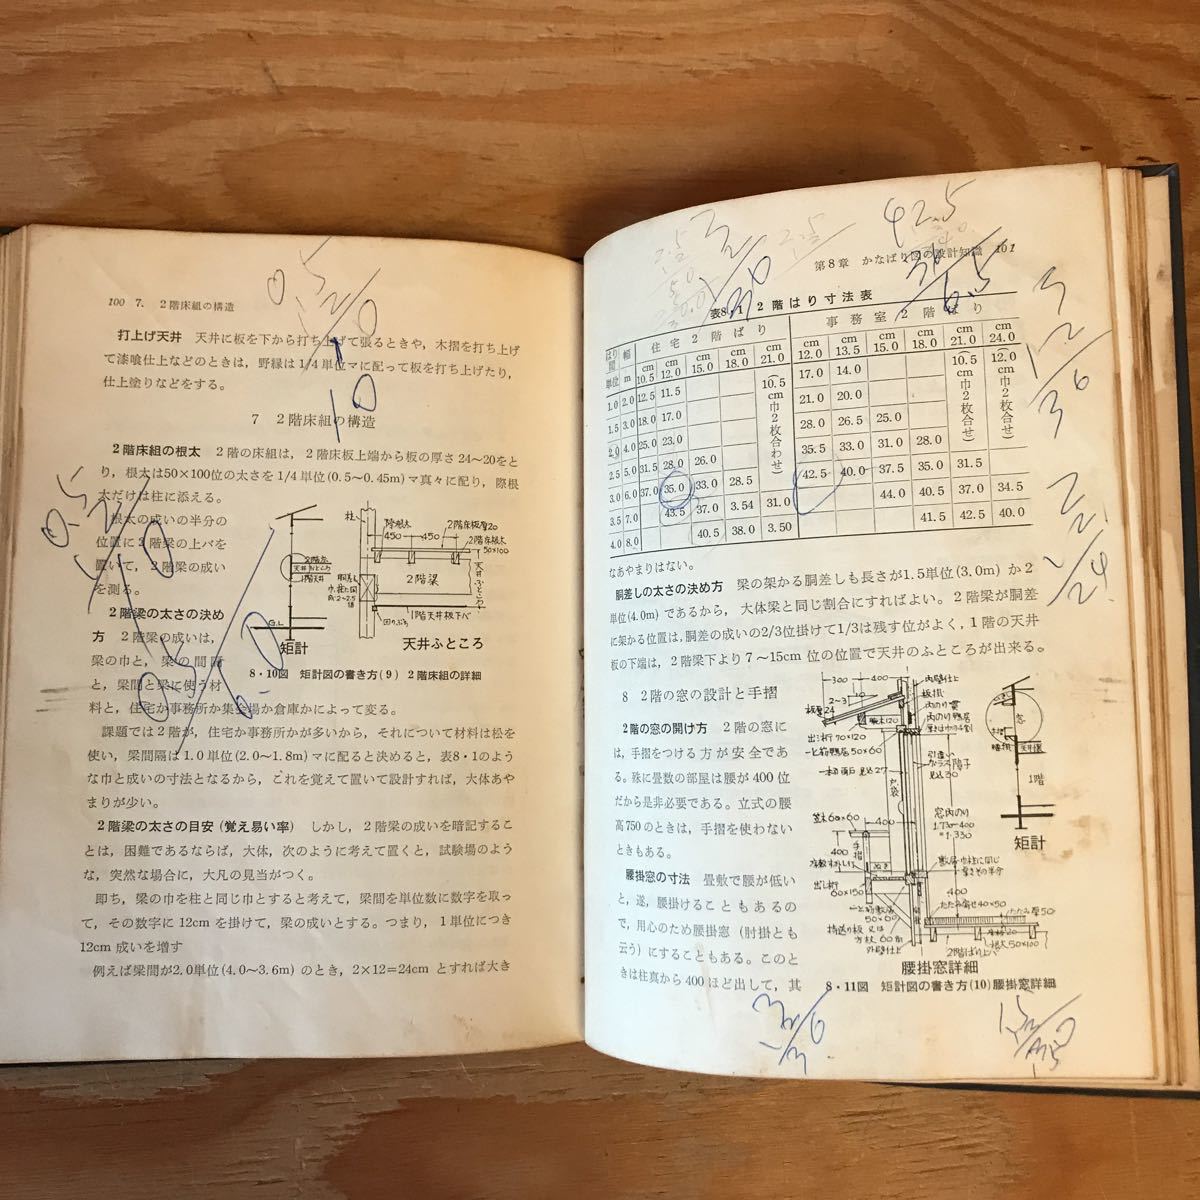 100 7. 2階床組の構造
打上げ天井 天井に板を下から打ち上げて張るときや，木摺を打ち上げ
て漆喰仕上などのときは，野縁は1/4単位マに配って板を打ち上げたり，
仕上塗りなどをする。
7 2階床組の構造
2階床組の根太 2階の床組は，2階床板上端から板の厚さ24~20をと
り，根太は50×100位の太さを1/4単位(0.5~0.45m)マ真々に配り，際根
太だけは柱に添える。
根太の成いの半分の
位置に2階梁の上バを
置いて，2階梁の成い
を測る。
2階梁の太さの決め
方 2階梁の成いは，
梁の巾と，梁の間隔
と，梁間と梁に使う材
料と，住宅か事務所か集会場か倉庫かによって変る。
柱
際根太
2階床板厚20
450 450
2階床根太
50×100
2階梁
G.L
矩計
天井ふところ
8・10図 矩計図の書き方(9) 2階床組の詳細
課題では2階が，住宅か事務所かが多いから，それについて材料は松を
使い，梁間隔は1.0単位(2.0~1.8m)マに配ると決めると，表8・1のよう
な巾と成いの寸法となるから，これを覚えて置いて設計すれば，大体あや
まりが少い。
2階梁の太さの目安(覚え易い率) しかし，2階梁の成いを暗記するこ
とは，困難であるならば，大体，次のように考えて置くと，試験場のよう
な，突然な場合に，大凡の見当がつく。
即ち，梁の巾を柱と同じ巾とすると考えて，梁間を単位数に数字を取っ
て，その数字に12cmを掛けて，梁の成いとする。つまり，1単位につき
12cm成いを増す
例えば梁間が2.0単位(4.0~3.6m)のとき，2×12=24cmとすれば大き
第8章 かなばり図の設計知識 101
表8・1 2階はり寸法表
はり間 幅 住宅2階ばり 事務室2階ばり
単位 m cm 10.5 cm 12.0 cm 15.0 cm 18.0 cm 21.0 cm 12.0 cm 13.5 cm 15.0 cm 18.0 cm 21.0 cm 24.0
(10.5cm巾2枚合わせ) (10.5cm巾2枚合せ) (12.0cm巾2枚合せ)
1.0 2.0 12.5 11.5 17.0 14.0
1.5 3.0 18.0 17.0 21.0 20.0
2.0 4.0 25.0 23.0 28.0 26.5 25.0
2.5 5.0 31.5 28.0 26.0 35.5 33.0 31.0 28.0
3.0 6.0 37.0 35.0 33.0 28.5 42.5 40.0 37.5 35.0 31.5
3.5 7.0 43.5 37.0 3.54 31.0 44.0 40.5 37.0 34.5
4.0 8.0 40.5 38.0 3.50 41.5 42.5 40.0
なあやまりはない。
胴差しの太さの決め方 梁の架かる胴差しも長さが1.5単位(3.0m)か2
単位(4.0m)であるから，大体梁と同じ割合にすればよい。2階梁が胴差
に架かる位置は，胴差の成いの2/3位掛けて1/3は残す位がよく，1階の天井
板の下端は，2階梁下より7~15cm位の位置で天井のふところが出来る。
8 2階の窓の設計と手摺
2階の窓の開け方 2階の窓に
は，手摺をつける方が安全であ
る。殊に畳数の部屋は腰が400位
だから是非必要である。立式の腰
高750のときは，手摺を使わない
ときもある。
腰掛窓の寸法 畳敷で腰が低い
と，遂，腰掛けることもあるの
で，用心のため腰掛窓(肘掛とも
云う)にすることもある。このと
きは柱真から400ほど出して，其
300 400
出シ桁70×120
戸袋
400
手摺
矩計
1階
腰掛窓詳細
8・11図 矩計図の書き方(10)腰掛窓詳細